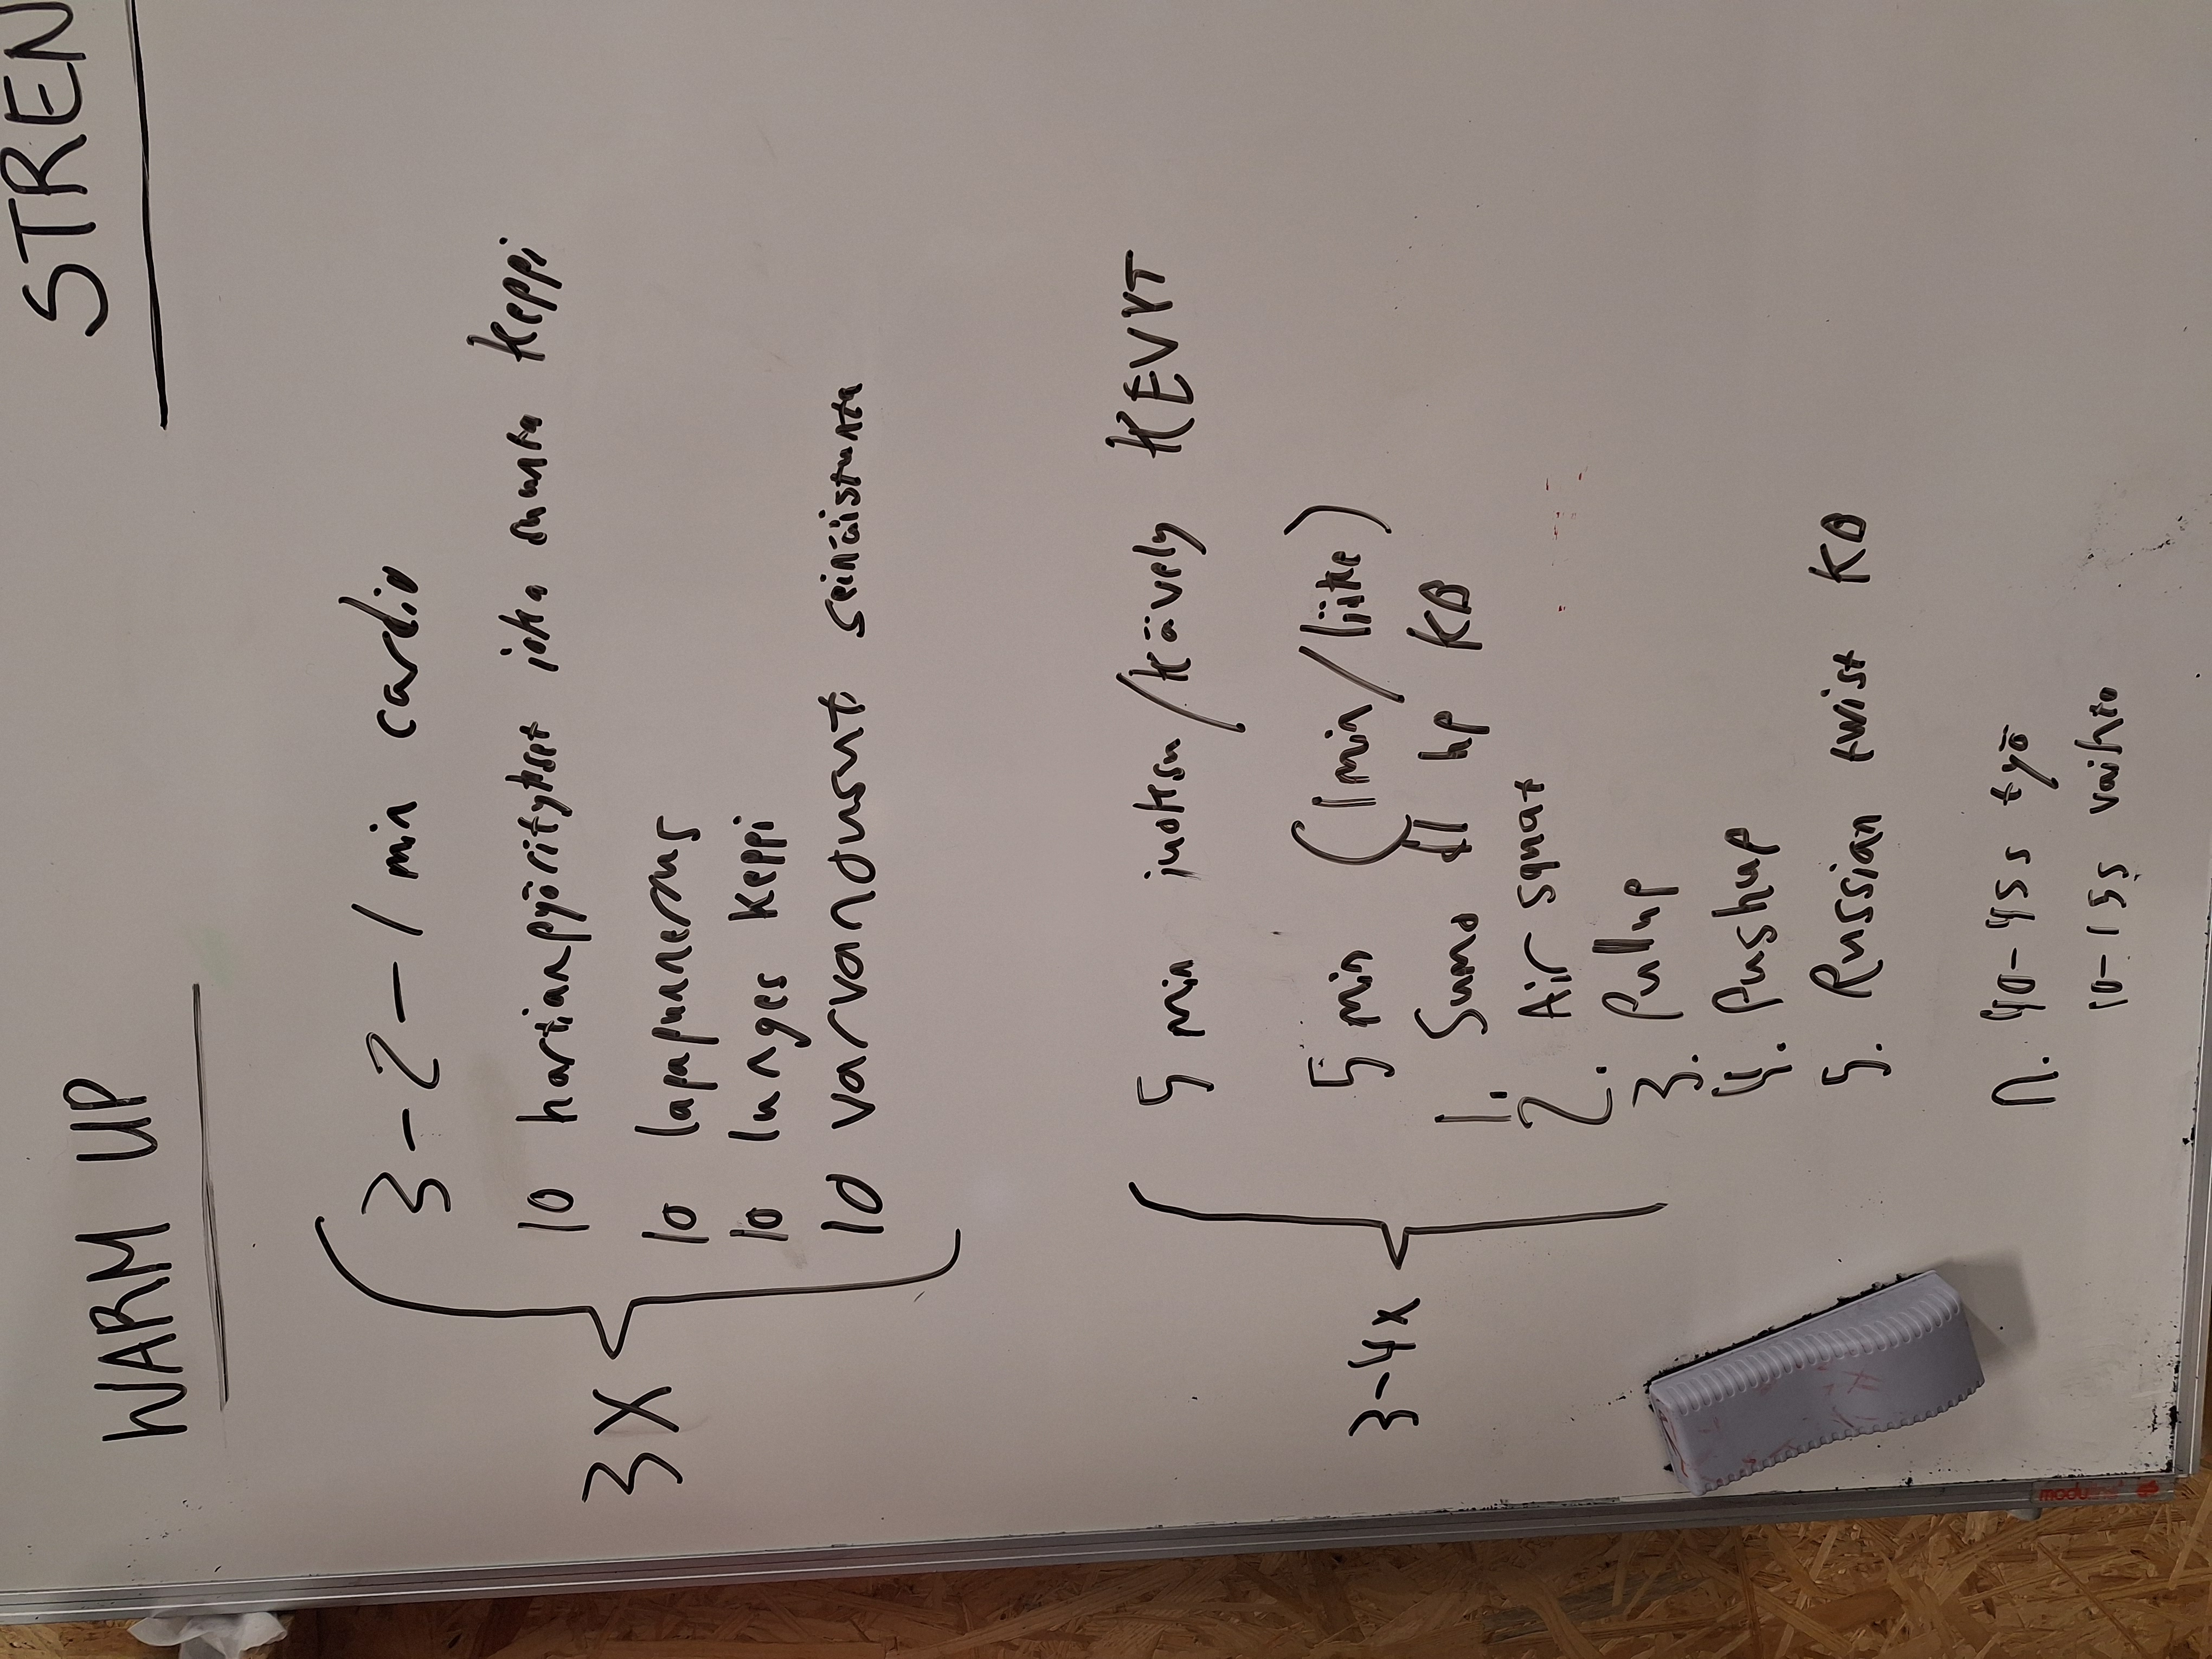 WARM UP
STREN
3-2-1 min cardio
3X
10 hartianpyöritykset joka suunta keppi
10 lapapunnerrus
10 lunges keppi
10 varvandusnt seinäistunta
5 min juoksu/kävely KEVYT
3-4X
5 min (1 min/liike)
1. Sumo hp KB
2. Air squat
3. Pullup
4. Pushup
5. Russian twist KB
n. 40-45 s työ
10-15 s vaihto